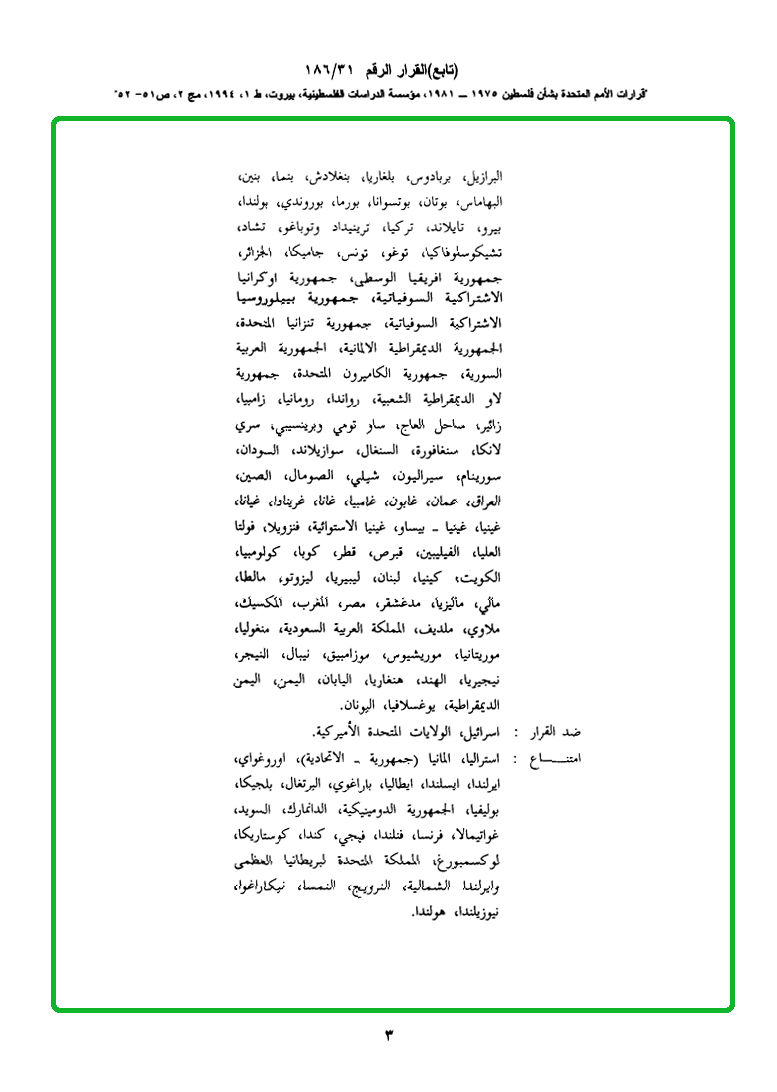 (تابع)القرار الرقم ١٨٦/٣١
"قرارات الأمم المتحدة بشأن فلسطين ١٩٧٥ – ١٩٨١، مؤسسة الدراسات الفلسطينية، بيروت، ط ١، ١٩٩٤، مج ٢، ص٥١– ٥٢"
البرازيل، بربادوس، بلغاريا، بنغلادش، بنما، بنين،
البهاماس، بوتان، بوتسوانا، بورما، بوروندي، بولندا،
بيرو، تايلاند، تركيا، ترينيداد وتوباغو، تشاد،
تشيكوسلوفاكيا، توغو، تونس، جاميكا، الجزائر،
جمهورية افريقيا الوسطى، جمهورية اوكرانيا
الاشتراكية السوفياتية، جمهورية بييلوروسيا
الاشتراكية السوفياتية، جمهورية تنزانيا المتحدة،
الجمهورية الديمقراطية الالمانية، الجمهورية العربية
السورية، جمهورية الكاميرون المتحدة، جمهورية
لاو الديمقراطية الشعبية، رواندا، رومانيا، زامبيا،
زائير، ساحل العاج، ساو تومي وبرينسيبي، سري
لانكا، سنغافورة، السنغال، سوازيلاند، السودان،
سورينام، سيراليون، شيلي، الصومال، الصين،
العراق، عمان، غابون، غامبيا، غانا، غرينادا، غيانا،
غينيا، غينيا – بيساو، غينيا الاستوائية، فنزويلا، فولتا
العليا، الفيليبين، قبرص، قطر، كوبا، كولومبيا،
الكويت، كينيا، لبنان، ليبيريا، ليزوتو، مالطا،
مالي، ماليزيا، مدغشقر، مصر، المغرب، المكسيك،
ملاوي، ملديف، المملكة العربية السعودية، منغوليا،
موريتانيا، موريشيوس، موزامبيق، نيبال، النيجر،
نيجيريا، الهند، هنغاريا، اليابان، اليمن، اليمن
الديمقراطية، يوغسلافيا، اليونان.
ضد القرار : اسرائيل، الولايات المتحدة الأميركية.
امتنـــاع : استراليا، المانيا (جمهورية – الاتحادية)، اوروغواي،
ايرلندا، ايسلندا، ايطاليا، باراغوي، البرتغال، بلجيكا،
بوليفيا، الجمهورية الدومينيكية، الدانمارك، السويد،
غواتيمالا، فرنسا، فنلندا، فيجي، كندا، كوستاريكا،
لوكسمبورغ، المملكة المتحدة لبريطانيا العظمى
وايرلندا الشمالية، النرويج، النمسا، نيكاراغوا،
نيوزيلندا، هولندا.
٣